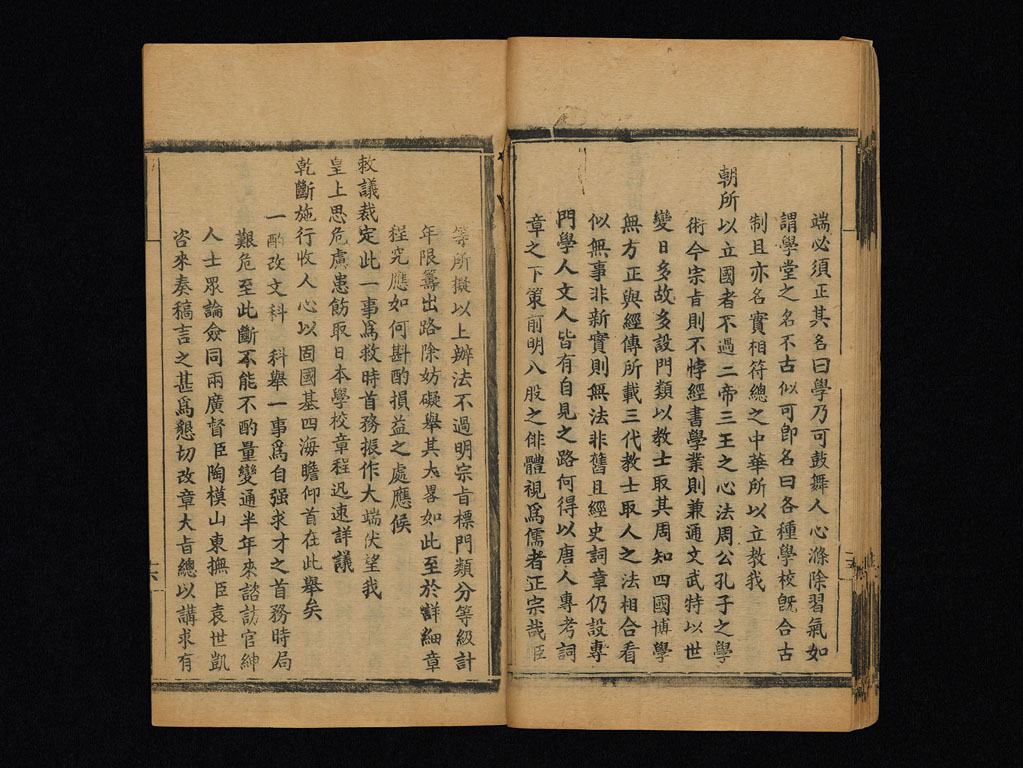 端必須正其名曰學乃可鼓舞人心滌除習氣如
謂學堂之名不古似可卽名曰各種學校旣合古
制且亦名實相符總之中華所以立教我
朝所以立國者不過二帝三王之心法周公孔子之學
術今宗旨則不悖經書學業則兼通文武特以世
變日多故多設門類以教士取其周知四國博學
無方正與經傳所載三代教士取人之法相合看
似無事非新實則無法非舊且經史詞章仍設專
門學人文人皆有自見之路何得以唐人專考詞
章之下策前明八股之俳體視爲儒者正宗哉臣
等所擬以上辦法不過明宗旨標門類分等級計
年限籌出路除妨礙舉其大畧如此至於詳細章
程究應如何斟酌損益之處應候
敕議裁定此一事爲救時首務振作大端伏望我
皇上思危慮患飭取日本學校章程迅速詳議
乾斷施行收人心以固國基四海瞻仰首在此舉矣
一酌改文科　科舉一事爲自强求才之首務時局
艱危至此斷不能不酌量變通半年來諮訪官紳
人士眾論僉同兩廣督臣陶模山東撫臣袁世凱
咨來奏稿言之甚爲懇切改章大旨總以講求有
十六